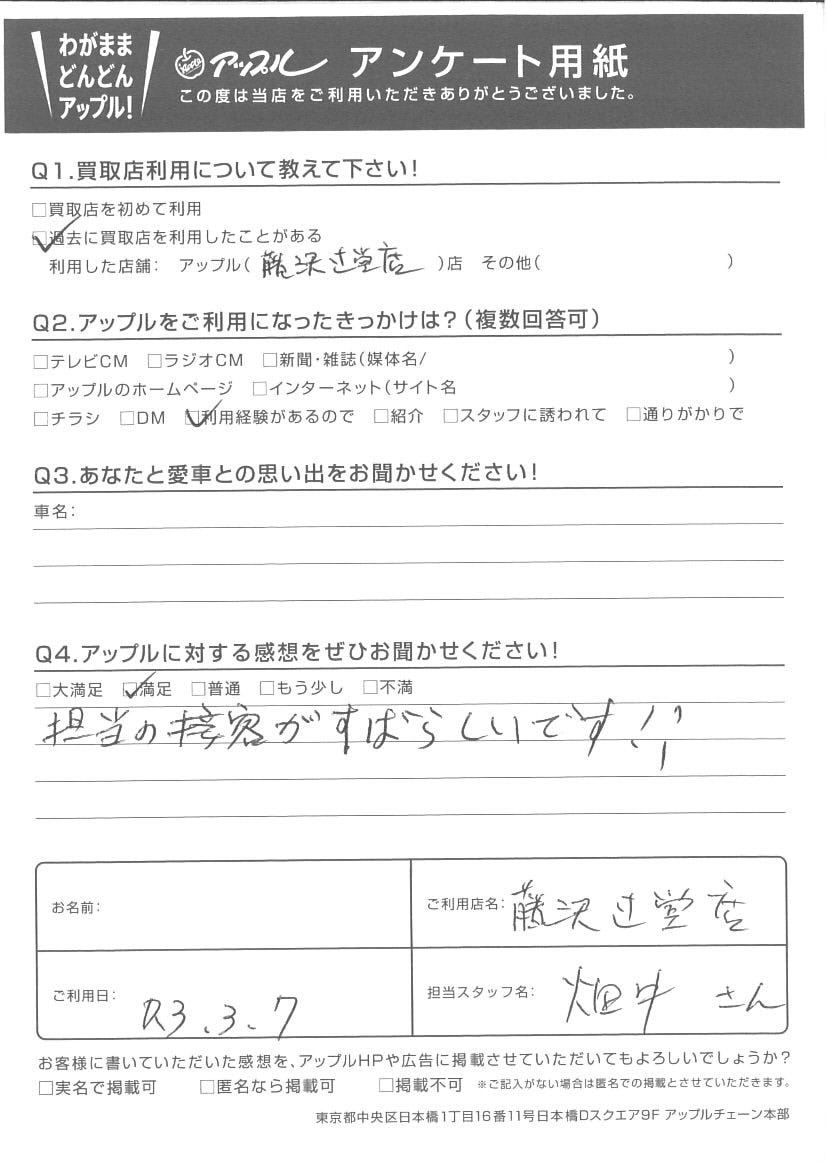 わがまま
どんどん
アップル!
アップル アンケート用紙
この度は当店をご利用いただきありがとうございました。
Q1.買取店利用について教えて下さい!
□買取店を初めて利用
☑過去に買取店を利用したことがある
利用した店舗: アップル(藤沢辻堂店)店 その他( )
Q2.アップルをご利用になったきっかけは?(複数回答可)
□テレビCM □ラジオCM □新聞・雑誌(媒体名/ )
□アップルのホームページ □インターネット(サイト名 )
□チラシ □DM ☑利用経験があるので □紹介 □スタッフに誘われて □通りがかりで
Q3.あなたと愛車との思い出をお聞かせください!
車名:
Q4.アップルに対する感想をぜひお聞かせください!
□大満足 ☑満足 □普通 □もう少し □不満
担当の接客がすばらしいです!!
お名前:
ご利用店名: 藤沢辻堂店
ご利用日: R3.3.7
担当スタッフ名: 畑中 さん
お客様に書いていただいた感想を、アップルHPや広告に掲載させていただいてもよろしいでしょうか?
□実名で掲載可 □匿名なら掲載可 □掲載不可 ※ご記入がない場合は匿名での掲載とさせていただきます。
東京都中央区日本橋1丁目16番11号日本橋Dスクエア9F アップルチェーン本部